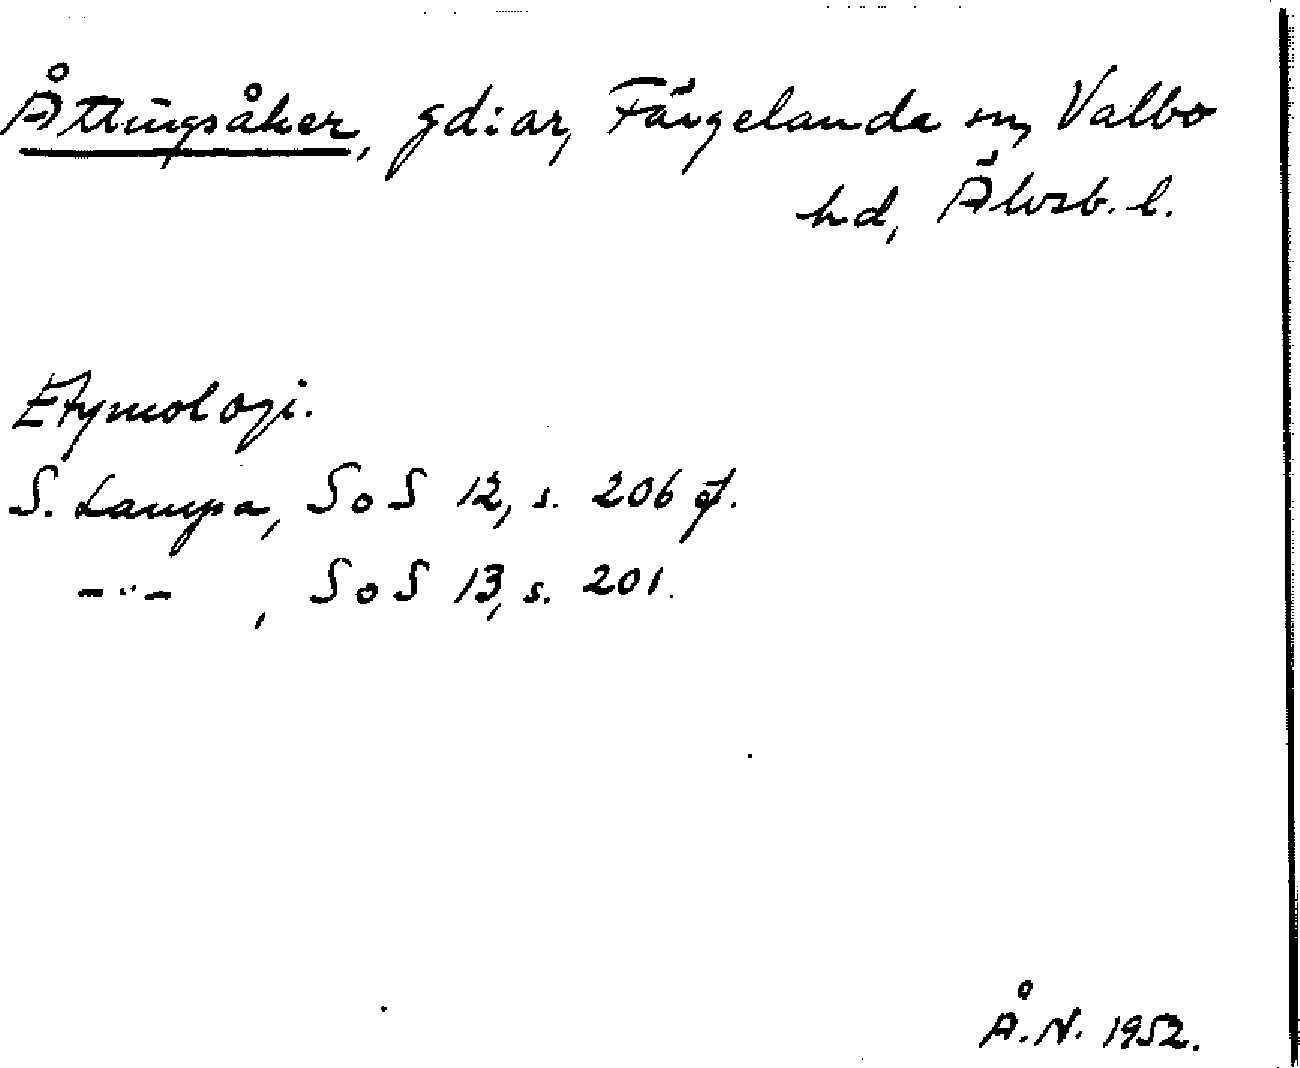 Åttingsåker, gd:ar, Färgelanda sn, Valbo
hd, Älvsb. l.
Etymologi.
S. Lampa, SoS 12, s. 206 f.
-"- , SoS 13, s. 201.
Å.N. 1952.